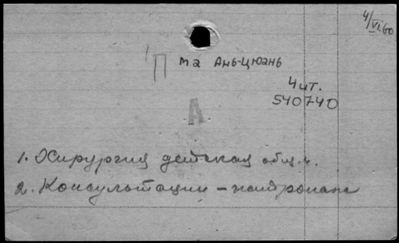 4/VI 60
П
ма Ань-Цюань
4 ит.
540740
А
1. Хирургия детская общ. ч.
2. Консультации – патронаж